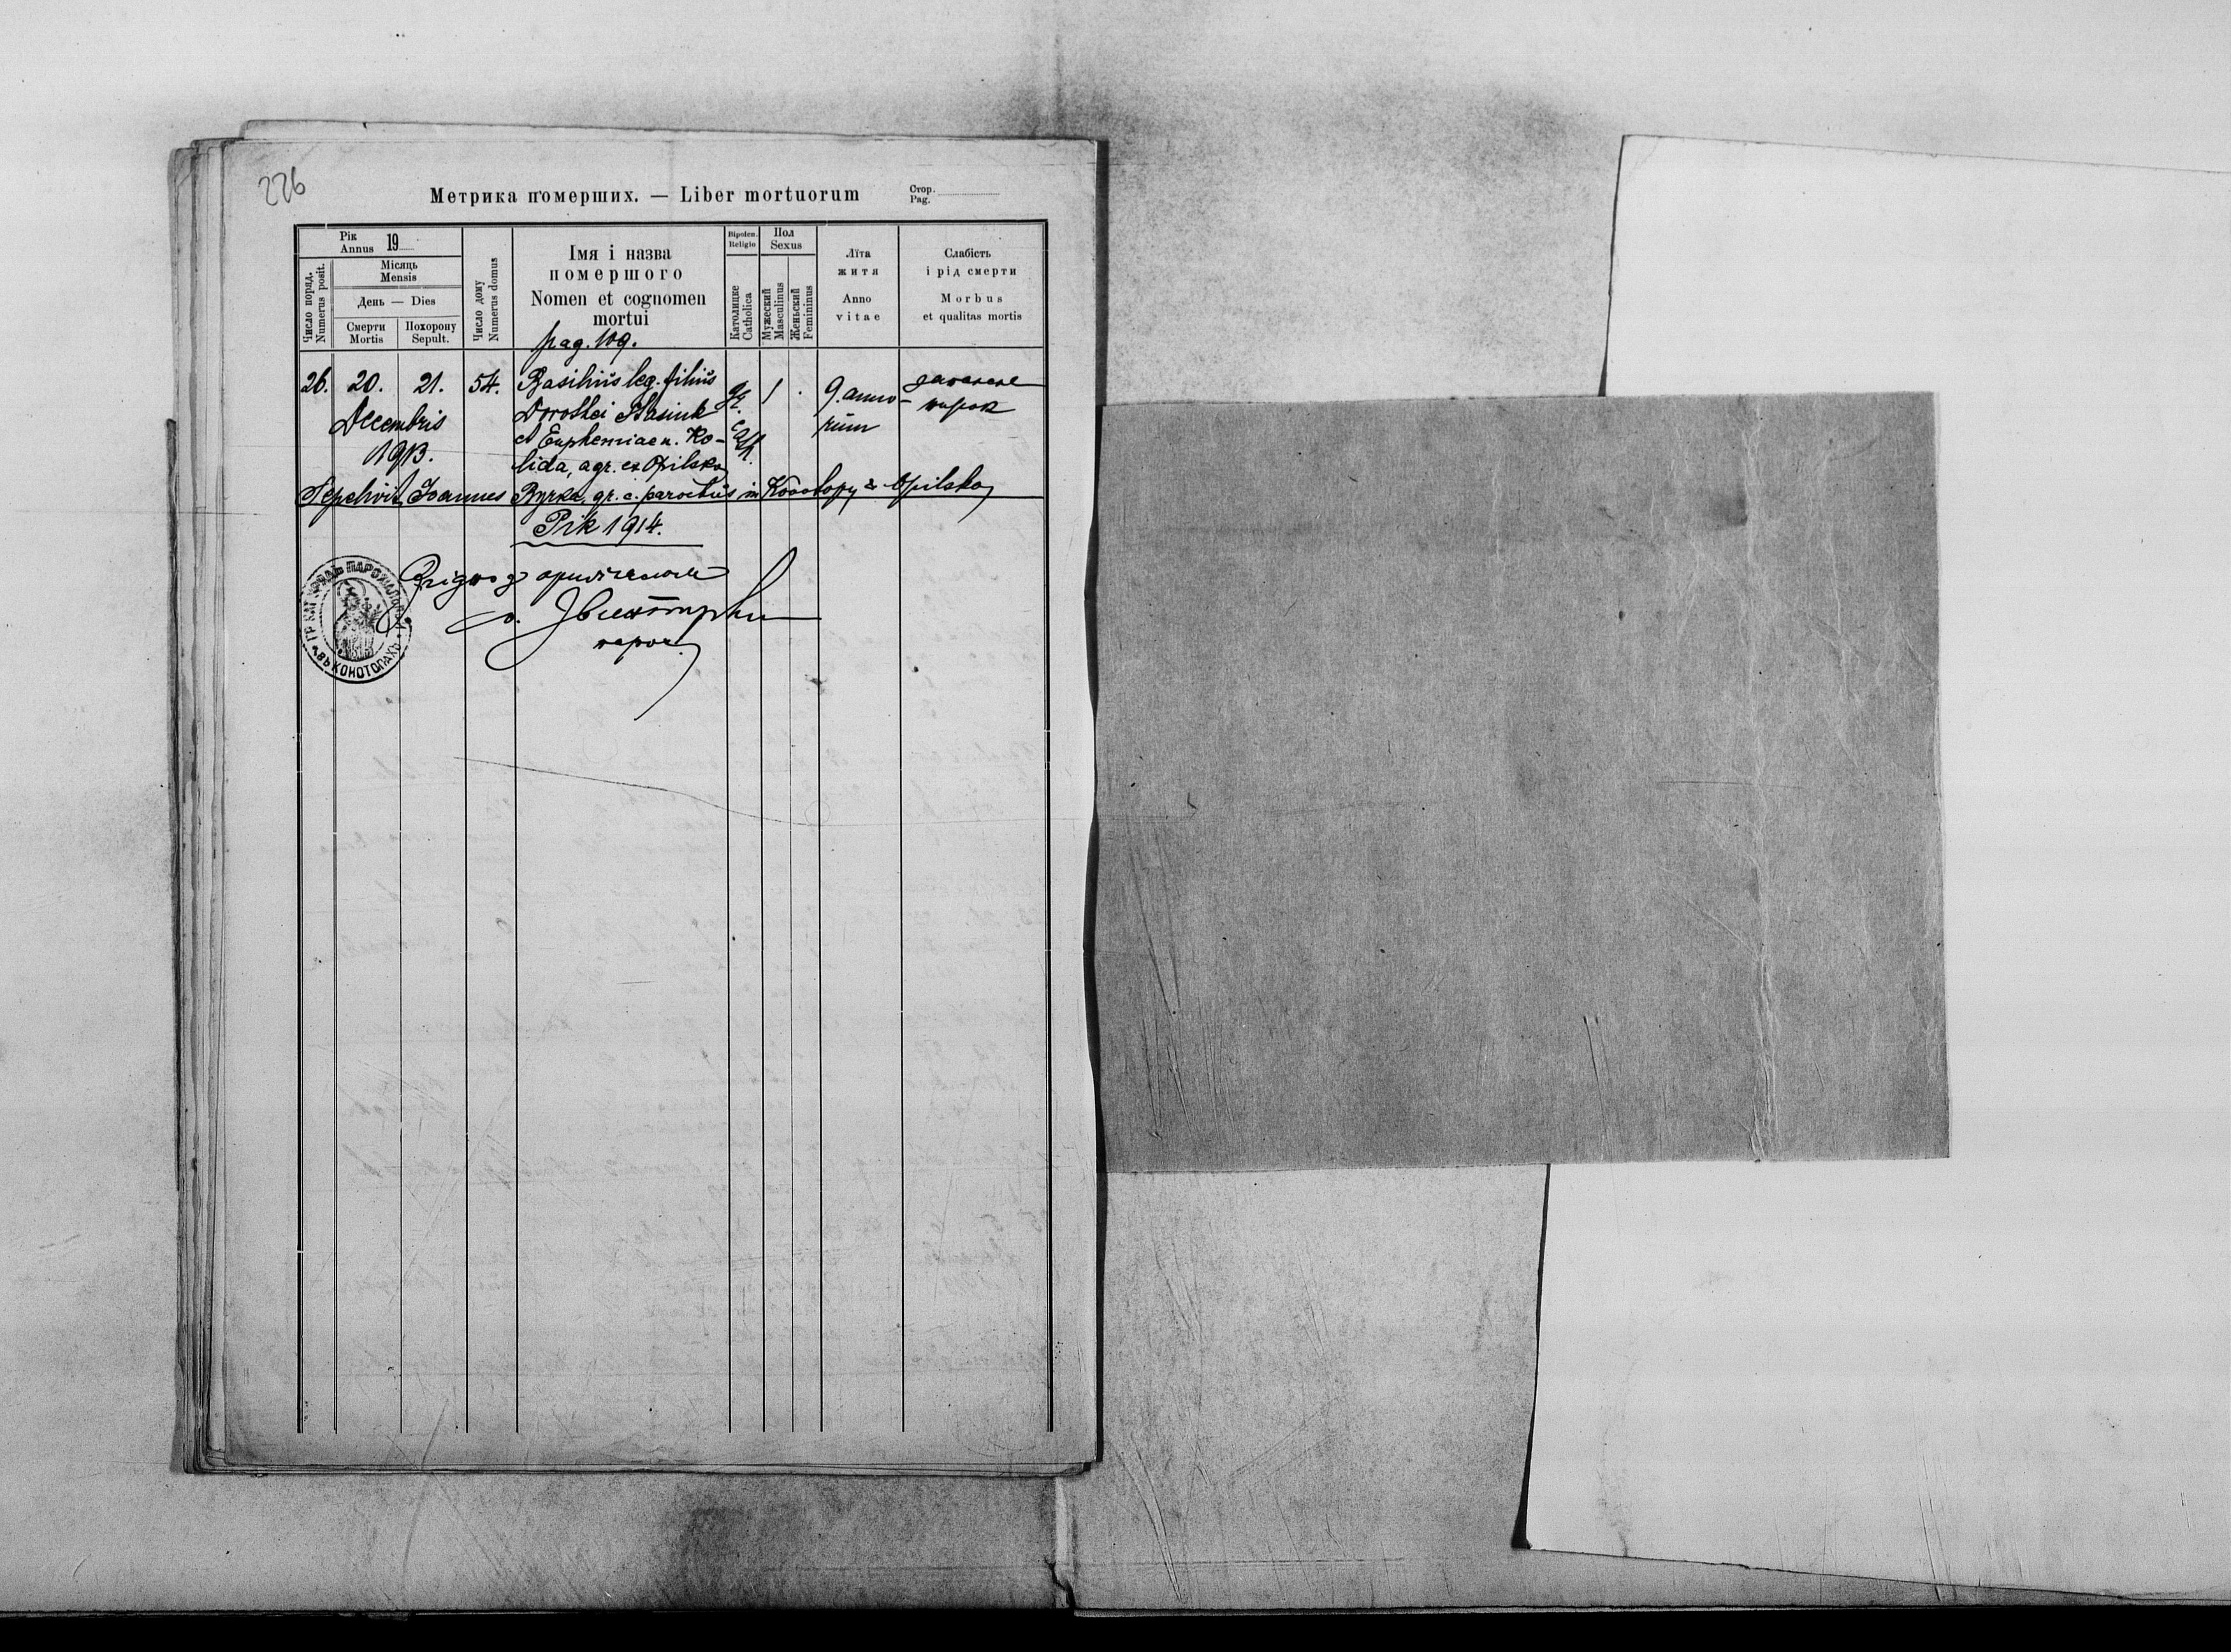 226
Метрика померших. — Liber mortuorum
Стор.
Pag.
Рік
Annus 19
Місяць
Mensis
День — Dies
Число поряд.
Numerus posit.
Смерти
Mortis
Похорону
Sepult.
Число дому
Numerus domus
Імя і назва
помершого
Nomen et cognomen
mortui
pag. 109.
Віросп.
Religio
Католицке
Catholica
Пол
Sexus
Мужеский
Masculinus
Женьский
Femininus
Лїта
житя
Anno
vitae
Слабість
і рід смерти
Morbus
et qualitas mortis
26. 20. 21. 54. Basilius leg. filius gr. 1 . 9. anno-
Decembris Dorothei Stasiuk rum
1913. et Euphemiae n. Ko- cath.
lida, agr. ex Opilsko
Sepelivit Joannes Byrka, gr. c. parochus in Konotopy & Opilsko
Рік 1914.
Згідно з оригіналом
о.
парох
ГР. КАТ. УРЯДЪ ПАРОХІАЛЬНЫЙ
ВЪ КОНОТОПАХЪ